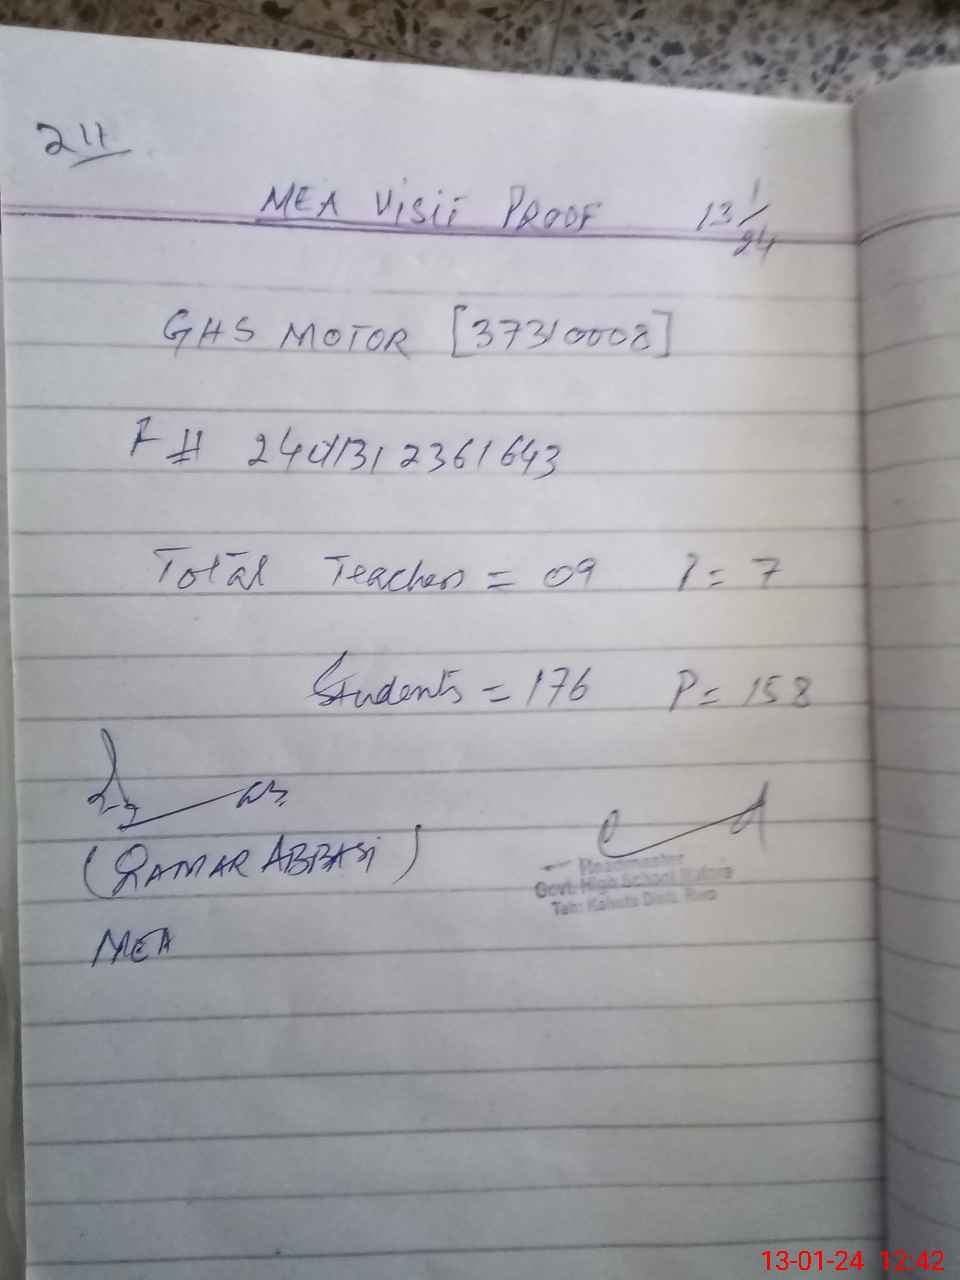 211
MEA Visit PROOF 13/1/24
GHS MOTOR [37310008]
F # 2401312361643
Total Teachers = 09 P = 7
Students = 176 P = 158
(QAMAR ABBASI)
MEA
Headmaster
Govt: High School
Teh: Kahuta Distt: Rwp
13-01-24 12:42